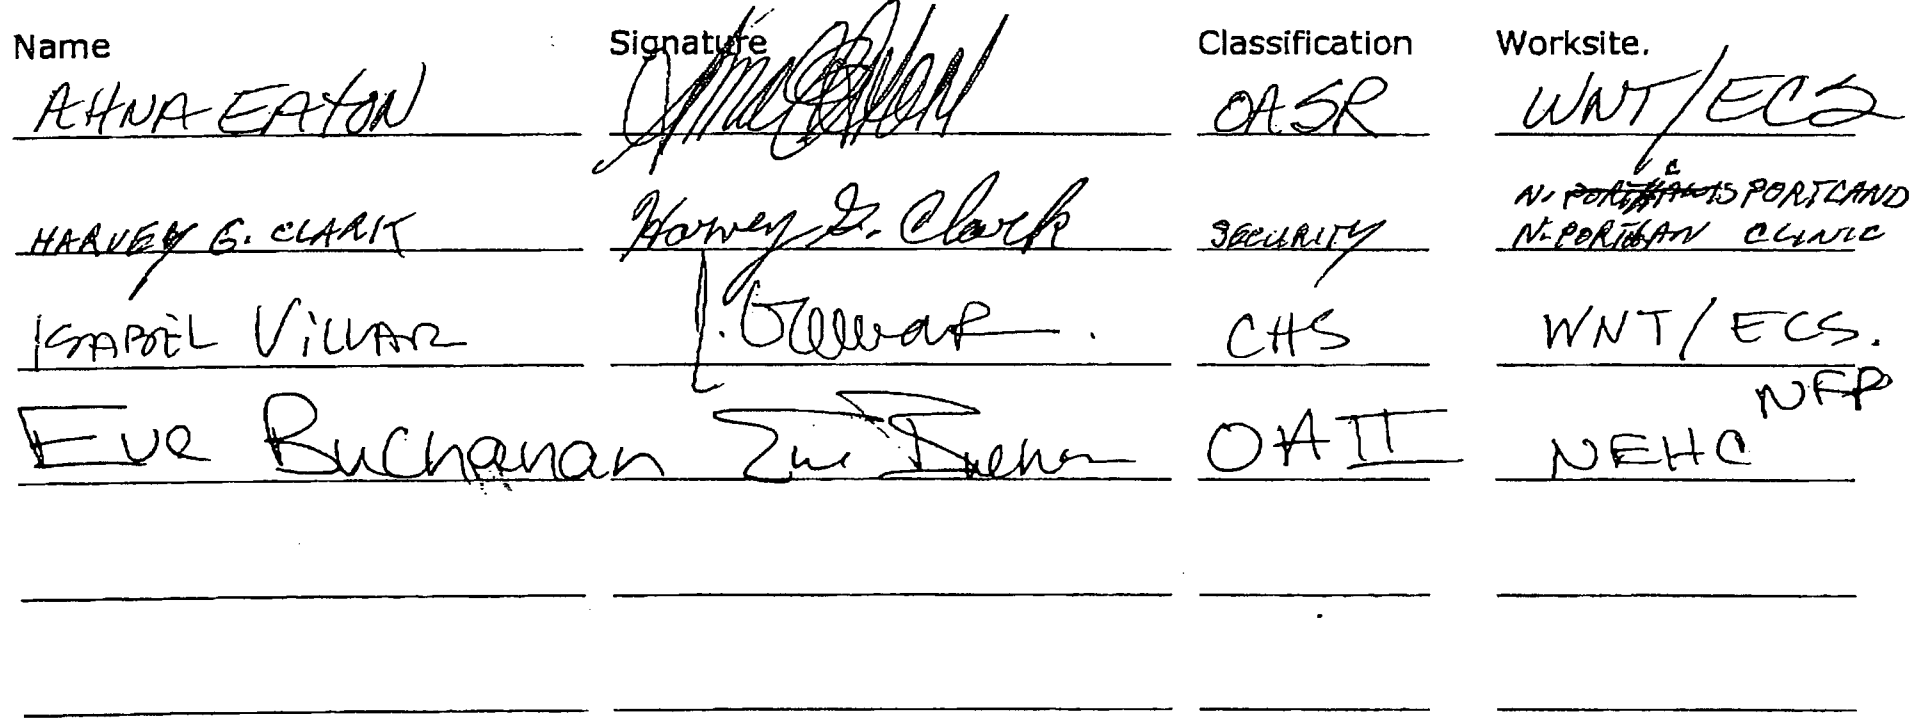 Name Signature Classification Worksite.
AHNA EATON OASR WNT/ECS
N. PORTLAND
HARVEY G. CLARK Harvey G. Clark SECURITY N. PORTLAN CLINIC
ISABEL VILLAR I. Villar. CHS WNT/ECS.
NFP
Eve Buchanan Eve OA II NEHC